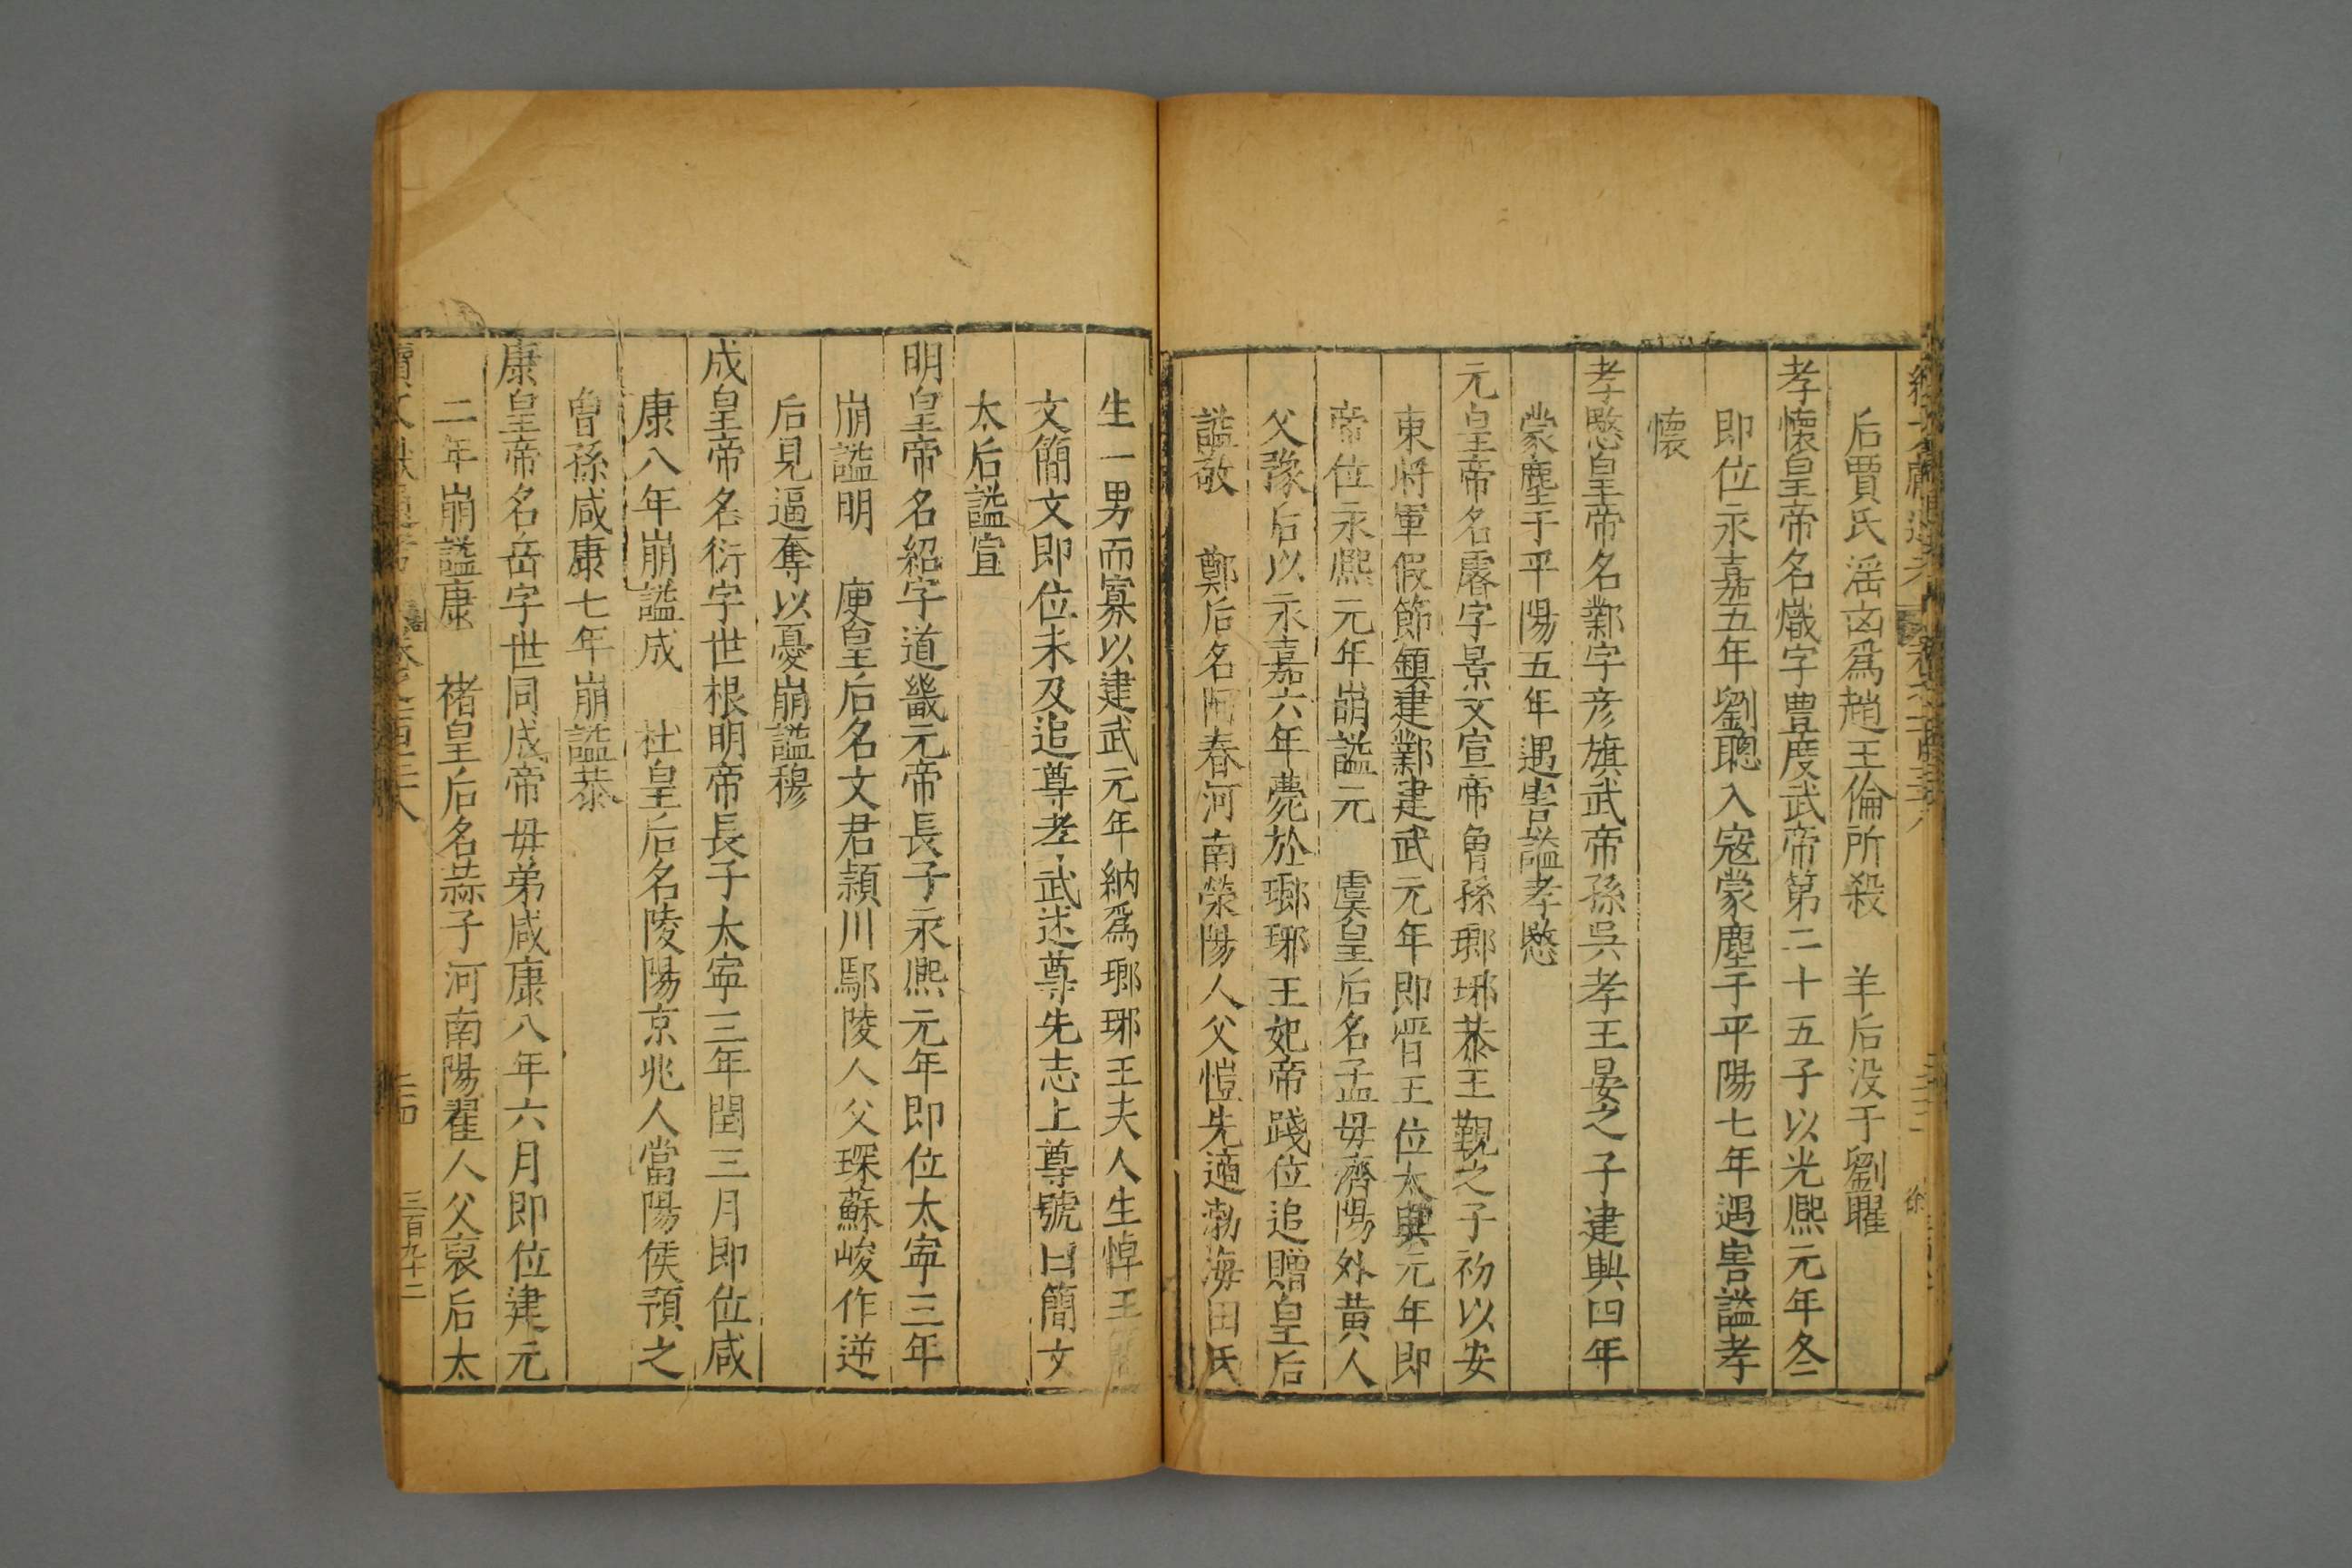 后賈氏滛㐫爲趙王倫所殺　羊后没于劉曜
孝懷皇帝名熾字豊度武帝第二十五子以光熈元年冬
即位永嘉五年劉聰入㓂蒙塵于平陽七年遇害謚孝
懷
孝愍皇帝名鄴字彦旗武帝孫吳孝王晏之子建興四年
蒙塵于平陽五年遇害謚孝愍
元皇帝名睿字景文宣帝曾孫瑯琊恭王覲之子初以安
東將軍假節鎮建鄴建武元年即晋王位太興元年即
帝位永熈元年崩謚元　虞皇后名孟母濟陽外黄人
父豫后以永嘉六年薨於瑯琊王妃帝踐位追贈皇后
謚敬　鄭后名阿春河南滎陽人父愷先適渤海田氏
生一男而寡以建武元年納爲瑯琊王夫人生悼王
文簡文即位未及追尊孝武述尊先志上尊號曰簡文
太后謚宣
明皇帝名紹字道畿元帝長子永熈元年即位太寧三年
崩謚明　庾皇后名文君頴川鄢陵人父琛蘇峻作逆
后見逼奪以憂崩謚穆
成皇帝名衍字世根明帝長子太寧三年閏三月即位咸
康八年崩謚成　杜皇后名陵陽京兆人當陽侯預之
曾孫咸康七年崩謚恭
康皇帝名岳字世同成帝母弟咸康八年六月即位建元
二年崩謚康　褚皇后名蒜子河南陽翟人父裒后太
三百九十二